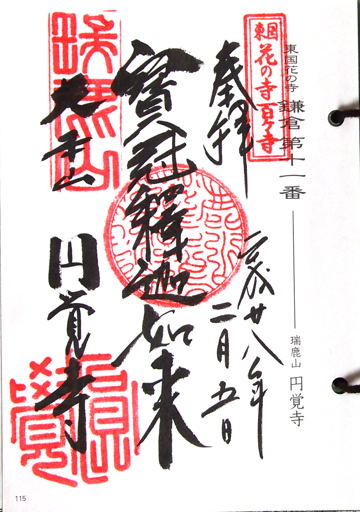 東国花の寺
鎌倉第十一番
瑞鹿山 円覚寺
東国
花の寺百ケ寺
奉拝
平成廿八年
二月五日
寶冠釋迦如来
大本山
円覚寺
瑞鹿山
115